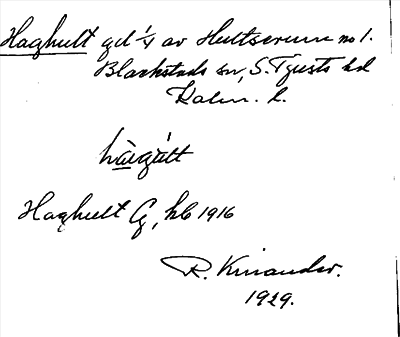 Haghult gd 1/4 av Hultserum no 1.
Blackstads sn, S. Tjusts hd
Kalm. l.
hagult
Haghult Lg, hb 1916
R. Kinander.
1929.